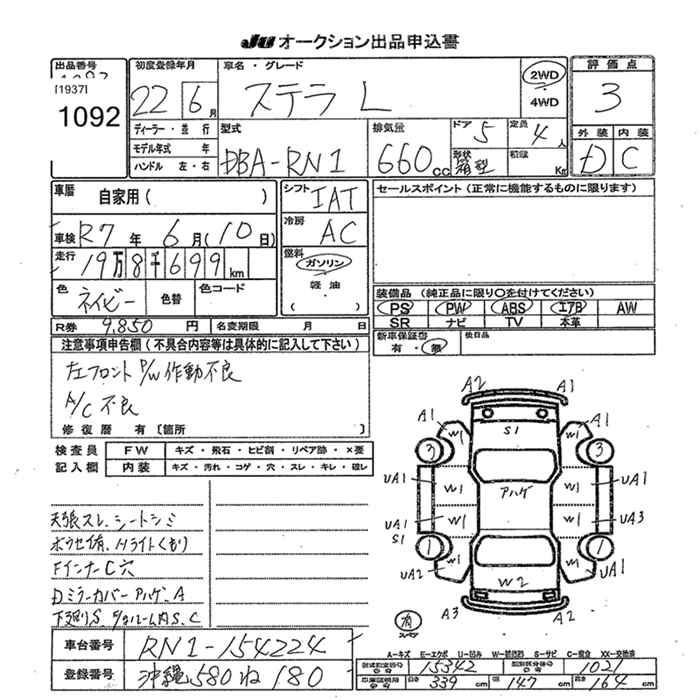 JU オークション出品申込書
出品番号 初度登録年月 車名・グレード 2WD 評価点
[1937] 1092 22 6月 ステラ L 4WD 3
ディーラー・並行 型式 排気量 ドア 5 定員 4人 外装 内装
モデル年式 年 DBA-RN1 660cc 形状 箱型 積載 Kg D C
ハンドル 左・右
車暦 自家用( ) シフト IAT セールスポイント(正常に機能するものに限ります)
車検 R7年 6月(10日) 冷房 AC
走行 19万8千699km 燃料 ガソリン
色 ネイビー 色替 色コード 軽油
( )
装備品(純正品に限り○を付けてください)
PS PW ABS エアB AW
SR ナビ TV 本革
R券 9,850円 名変期限 月 日
新車保証書 有・無 後日品
注意事項申告欄(不具合内容等は具体的に記入して下さい)
左フロントP/W作動不良
A/C不良
修復歴 有〔箇所
検査員 FW キズ・飛石・ヒビ割・リペア跡・×要
記入欄 内装 キズ・汚れ・コゲ・穴・スレ・キレ・破レ
天張スレ、シートシミ
ボウセイ有、Hライトくもり
FインナC穴
Dミラーカバーアハゲ、A
下廻りS、
A2 A1
A1 W1 S1 W1 A1
3 3
UA1 W1 アハゲ W1 UA1
UA1 W1 W1 UA3
S1
1 1
UA2 W1 W2 W1 A1
A3 A2
有
A-キズ E-エクボ U-凹み W-補修跡 S-サビ C-腐食 XX-交換済
車台番号 RN1-154224
登録番号 沖縄580ね180
型式指定番号 15342 類別区分番号 1021
339 cm 幅 147 cm 高さ 164 cm